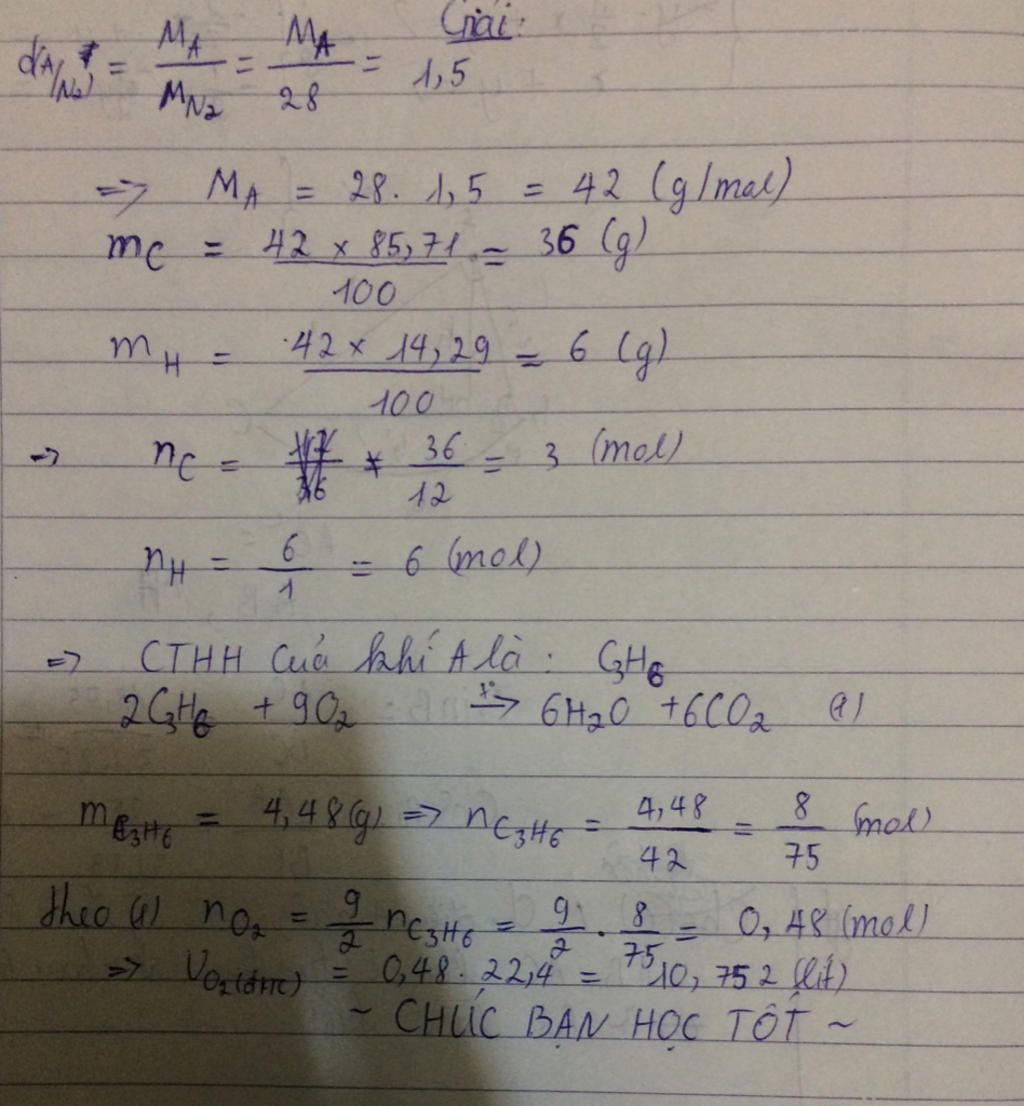 Giải:
d(A/N₂) = M_A / M_N₂ = M_A / 28 = 1,5
=> M_A = 28. 1,5 = 42 (g/mol)
m_C = 42 x 85,71 / 100 = 36 (g)
m_H = 42 x 14,29 / 100 = 6 (g)
=> n_C = 36 / 12 = 3 (mol)
n_H = 6 / 1 = 6 (mol)
=> CTHH của khí A là: C₃H₆
2C₃H₆ + 9O₂ t° → 6H₂O + 6CO₂ (1)
m_C₃H₆ = 4,48(g) => n_C₃H₆ = 4,48 / 42 = 8 / 75 (mol)
theo (1) n_O₂ = 9/2 n_C₃H₆ = 9/2 . 8/75 = 0,48 (mol)
=> V_O₂(đktc) = 0,48. 22,4 = 10,752 (lít)
~ CHÚC BẠN HỌC TỐT ~